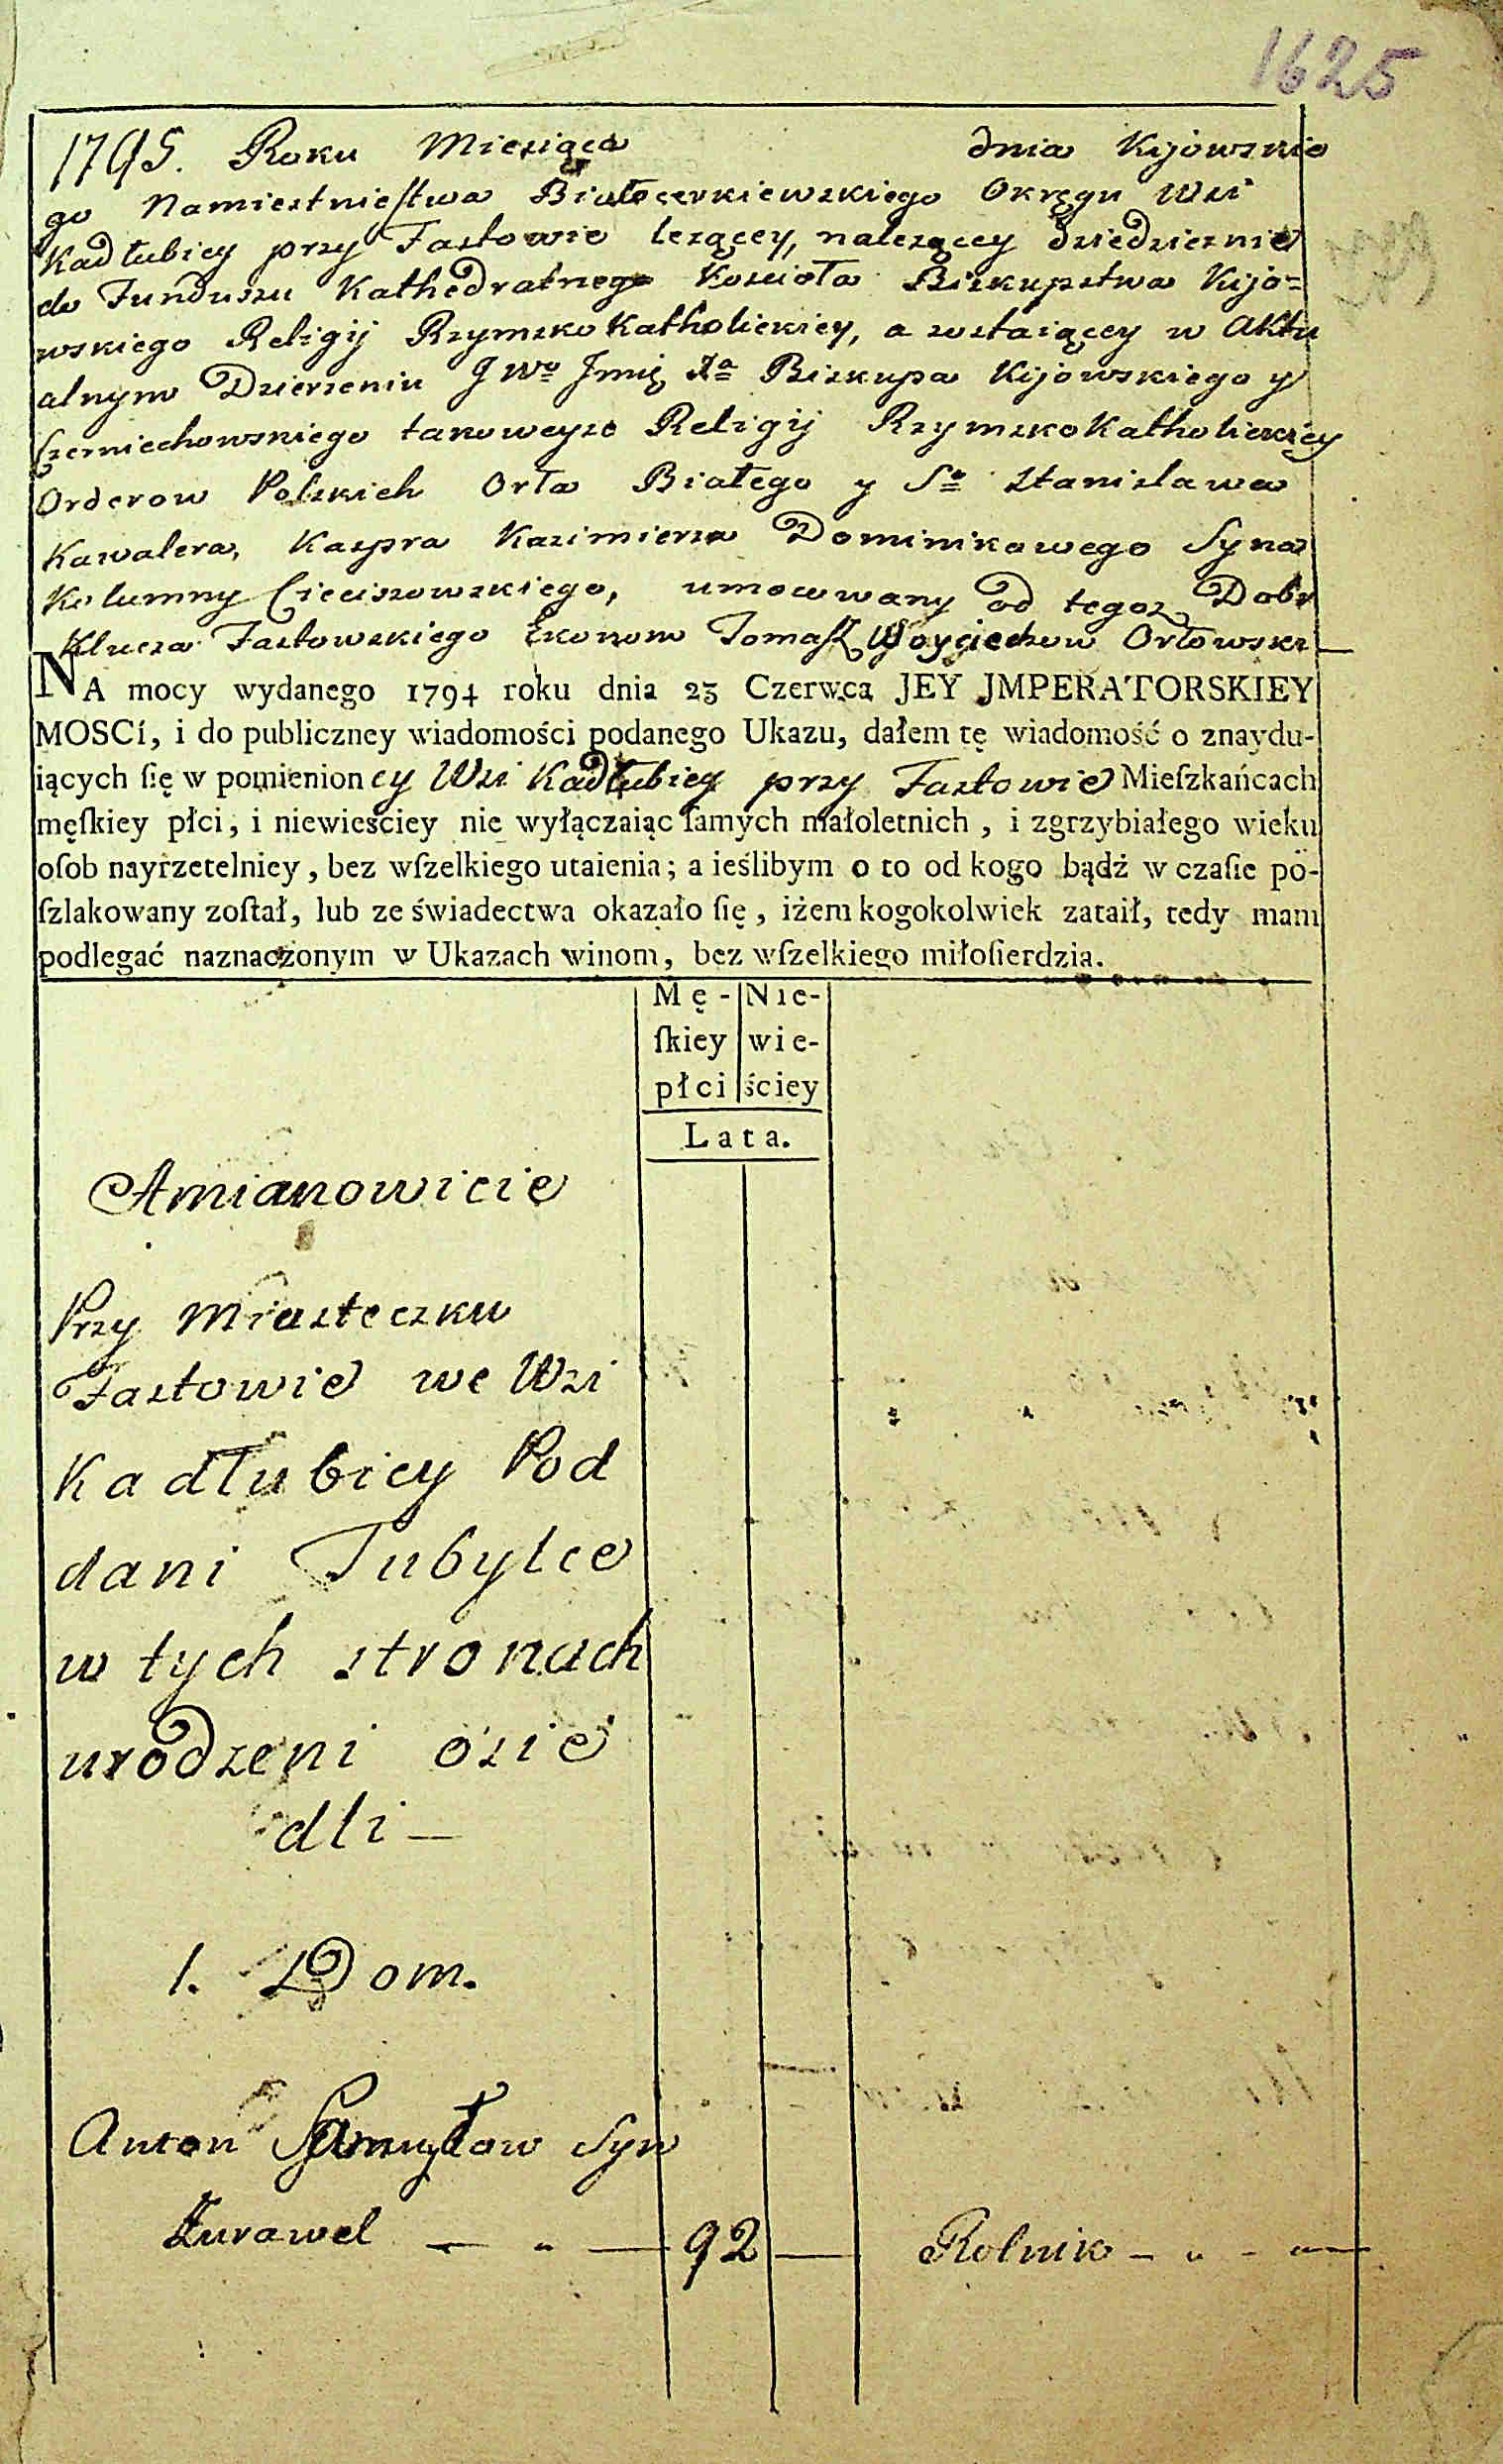 1625
1795. Roku Miesiąca dnia Kijowskie
go Namiestnicſtwa Białocerkiewskiego Okręgu Wsi
Kadłubicy przy Fastowie lezącey, nalezącey dziedzicznie
do Funduszu Kathedralnego Kosciola Biskupstwa Kijo=
wskiego Religij Rzymsko Katholickiey, a zostaiącey w Aktu
alnym Dzierzeniu J Wo Jmię Xa Biskupa Kijowskiego y
Czerniechowskiego takoweyze Religij Rzymsko Katholickiey
Orderow Polskich Orła Białego y So Stanislawa
Kawalera, Kaspra Kazimierza Dominikowego Syna
Kolumny Cieciszowskiego, umocowany od tegoz Dobr
Klucza Fastowskiego Ekonom Tomaſz Woyciechow Orłowski—
NA mocy wydanego 1794 roku dnia 23 Czerwca JEY JMPERATORSKIEY
MOSCí, i do publiczney wiadomości podanego Ukazu, dałem tę wiadomość o znaydu-
iących ſię w pomienioney Wsi Kadłubicy przy Fastowie Mieſzkańcach
męſkiey płci, i niewieściey nie wyłączaiąc ſamych małoletnich, i zgrzybiałego wieku
oſob nayrzetelniey, bez wſzelkiego utaienia; a ieślibym o to od kogo bądź w czaſie po-
ſzlakowany zoſtał, lub ze świadectwa okazało ſię, iżem kogokolwiek zataił, tedy mam
podlegać naznaczonym w Ukazach winom, bez wſzelkiego miłoſierdzia.
Mę- Nie-
ſkiey wie-
płci ściey
Lata.
Amianowicie
Przy Miasteczku
Fastowie we Wsi
Kadłubicy Pod
dani Tubylce
w tych stronach
urodzeni osie
dli —
1. Dom.
Anton Samuyłow Syn
Zurawel — " — 92 — Rolnik — " - "—